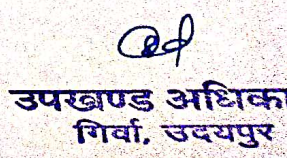 उपखण्ड अधिका
गिर्वा, उदयपुर